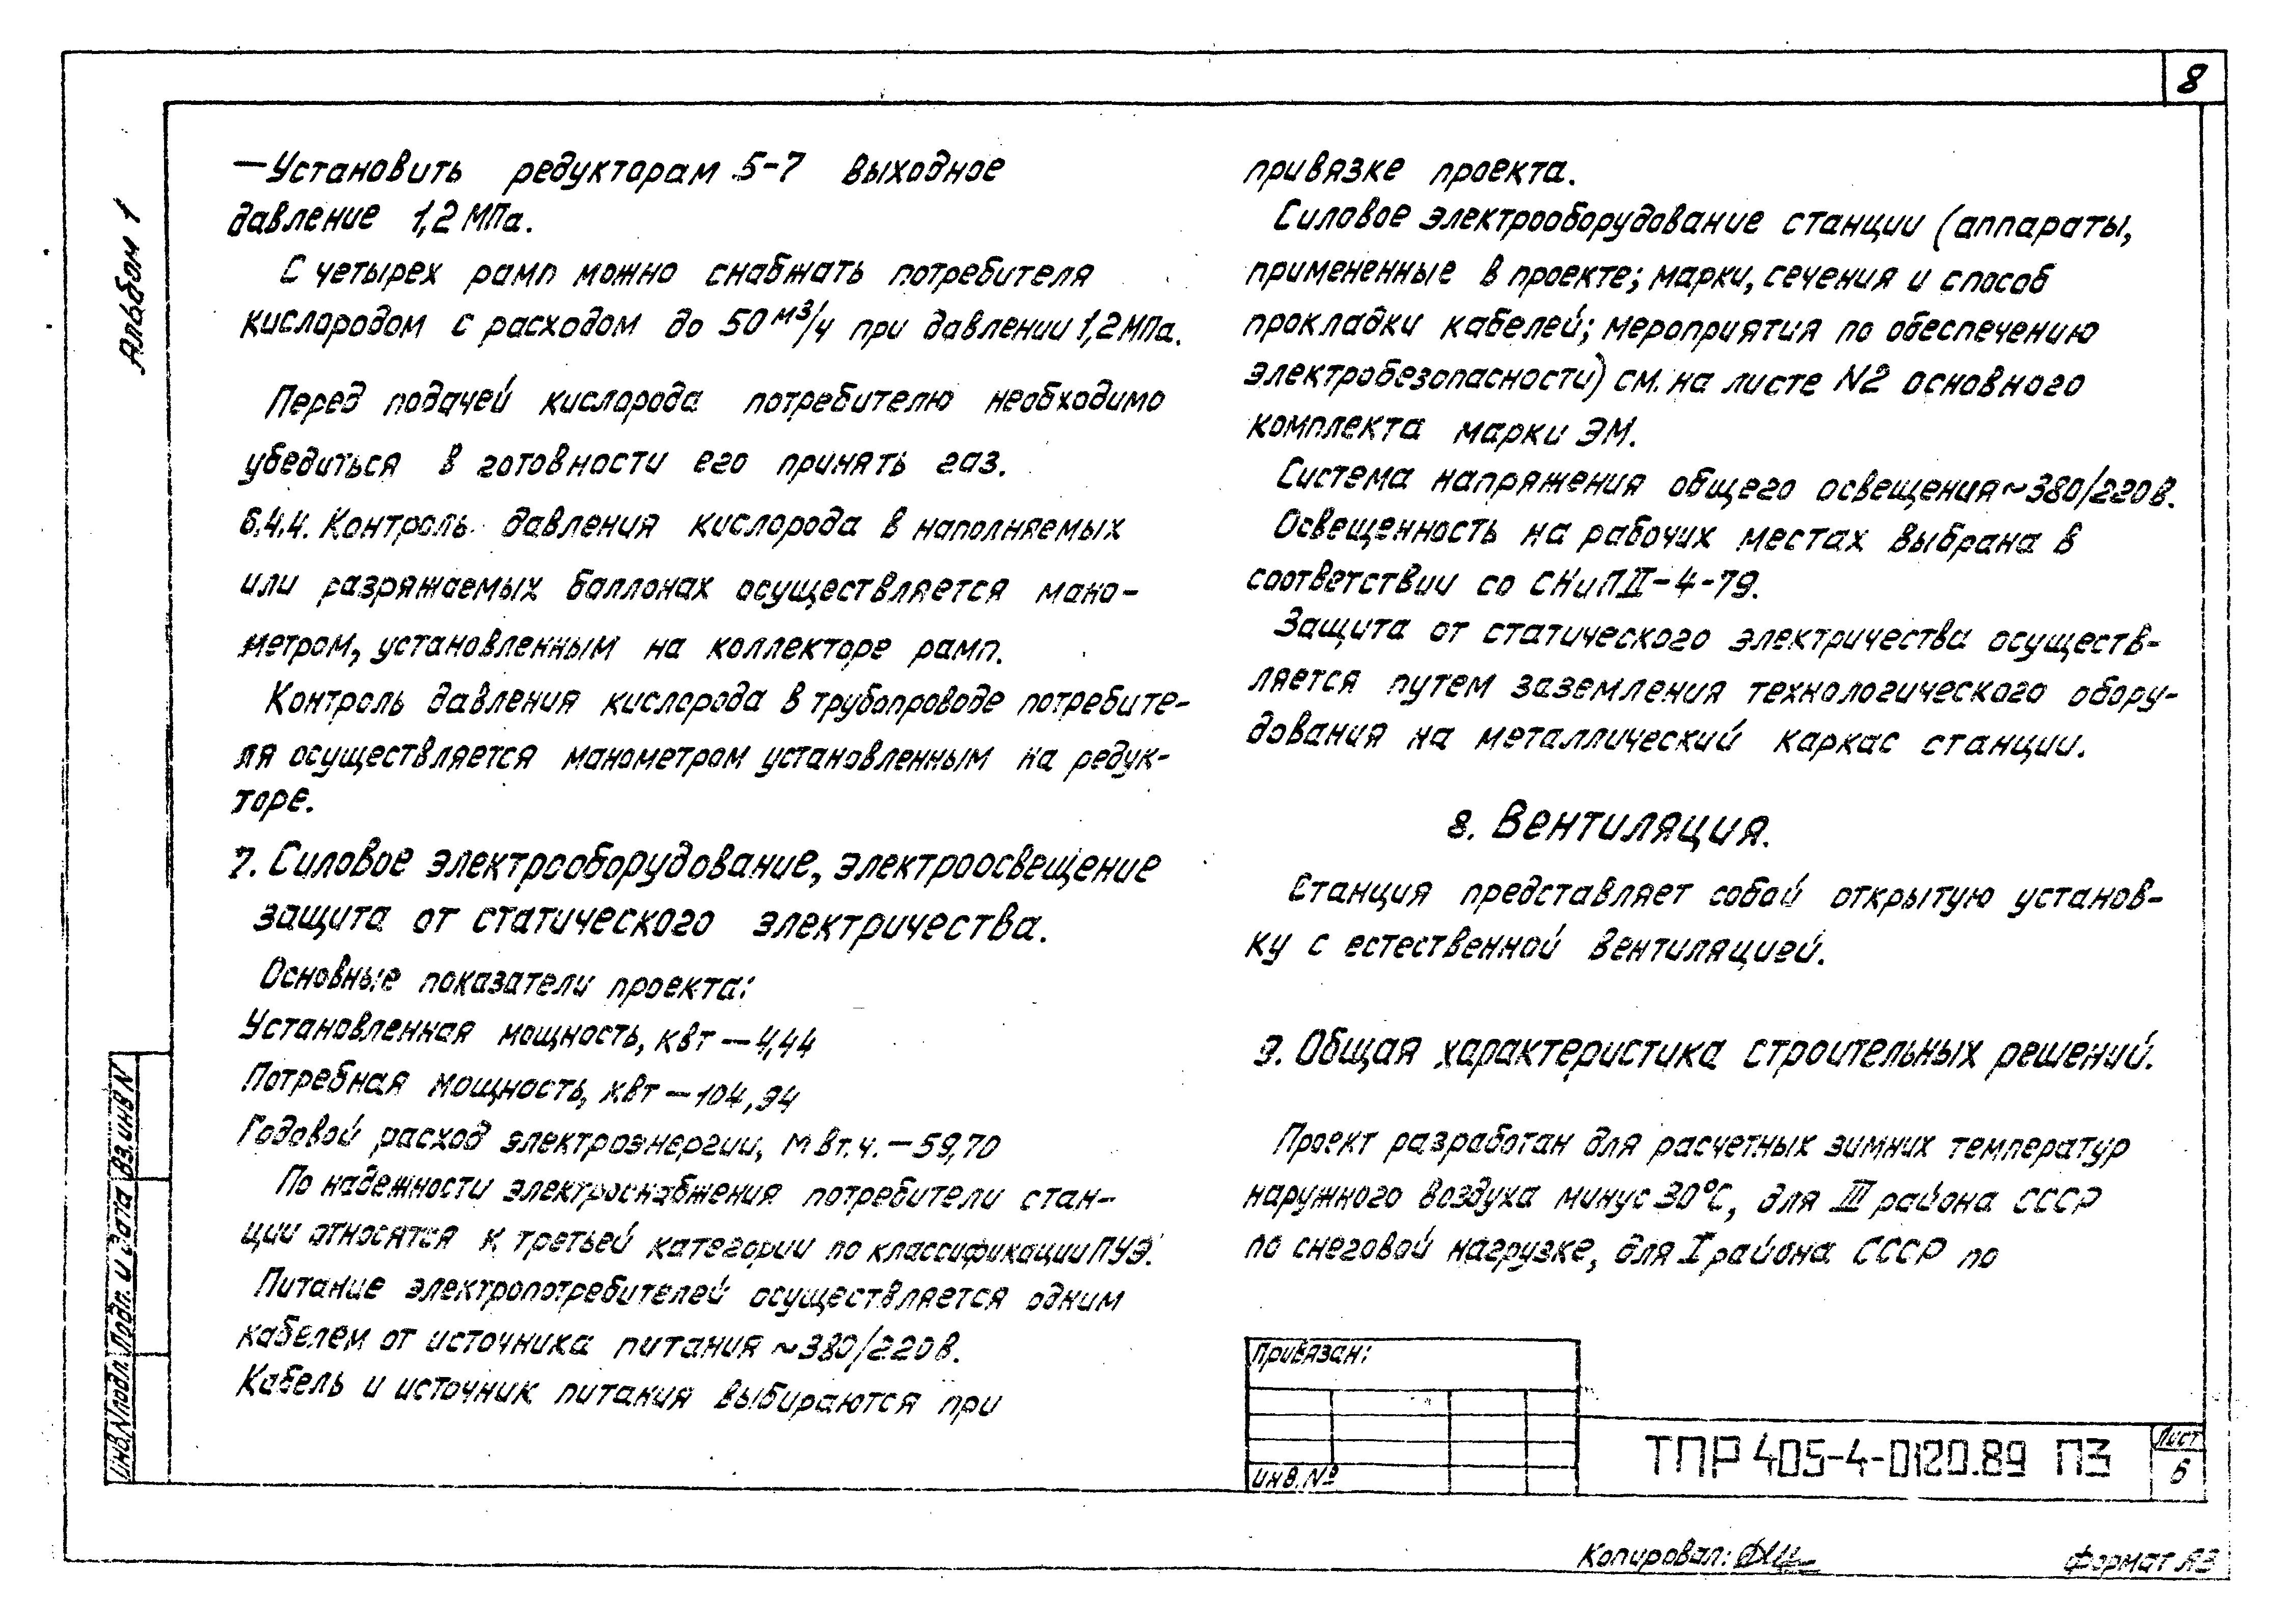 8
Альбом 1
—Установить редукторам 5-7 выходное
давление 1,2 МПа.
С четырех рамп можно снабжать потребителя
кислородом с расходом до 50 м³/ч при давлении 1,2 МПа.
Перед подачей кислорода потребителю необходимо
убедиться в готовности его принять газ.
6.4.4. Контроль давления кислорода в наполняемых
или разряжаемых баллонах осуществляется мано-
метром, установленным на коллекторе рамп.
Контроль давления кислорода в трубопроводе потребите-
ля осуществляется манометром установленным на редук-
торе.
7. Силовое электрооборудование, электроосвещение
защита от статического электричества.
Основные показатели проекта:
Установленная мощность, квт — 4,44
Потребная мощность, квт — 104,94
Годовой расход электроэнергии, Мвт.ч. — 59,70
По надежности электроснабжения потребители стан-
ции относятся к третьей категории по классификации ПУЭ.
Питание электропотребителей осуществляется одним
кабелем от источника питания ~380/220в.
Кабель и источник питания выбираются при
привязке проекта.
Силовое электрооборудование станции (аппараты,
примененные в проекте; марки, сечения и способ
прокладки кабелей; мероприятия по обеспечению
электробезопасности) см. на листе N2 основного
комплекта марки ЭМ.
Система напряжения общего освещения ~380/220в.
Освещенность на рабочих местах выбрана в
соответствии со СНиП II-4-79.
Защита от статического электричества осуществ-
ляется путем заземления технологического обору-
дования на металлический каркас станции.
8. Вентиляция.
Станция представляет собой открытую установ-
ку с естественной вентиляцией.
9. Общая характеристика строительных решений.
Проект разработан для расчетных зимних температур
наружного воздуха минус 30°С, для III района СССР
по снеговой нагрузке, для I района СССР по
Привязан:
Инв. №
ТПР 405-4-0120.89 ПЗ
Лист
6
Инв. N подл.
Подп. и дата
Вз. инв N
Копировал:
Формат А3